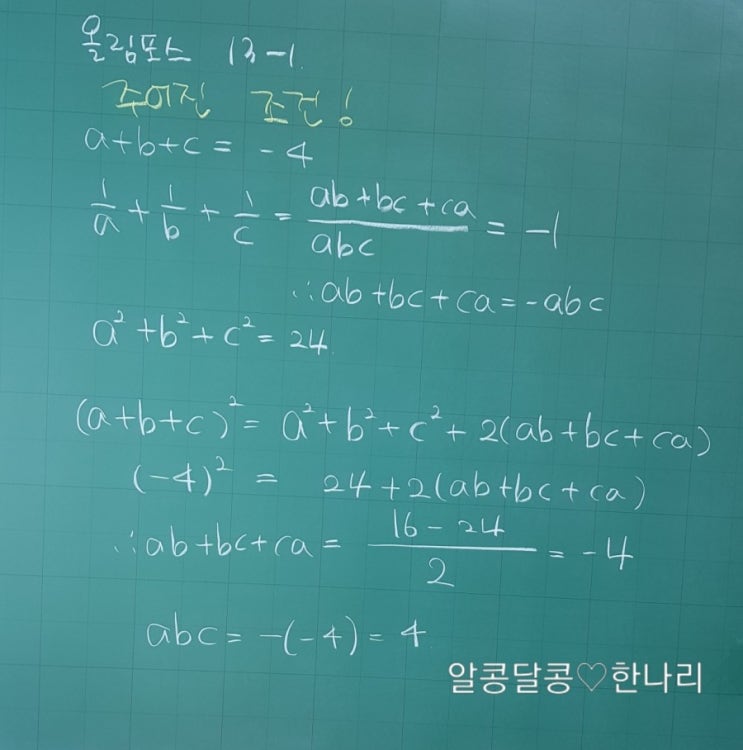 올림포스 13-1.
주어진 조건!
a+b+c = -4
1/a + 1/b + 1/c = (ab+bc+ca)/(abc) = -1
∴ab+bc+ca=-abc
a²+b²+c²=24
(a+b+c)²= a²+b²+c²+2(ab+bc+ca)
(-4)² = 24+2(ab+bc+ca)
∴ab+bc+ca = (16-24)/2 = -4
abc = -(-4) = 4
알콩달콩♡한나리